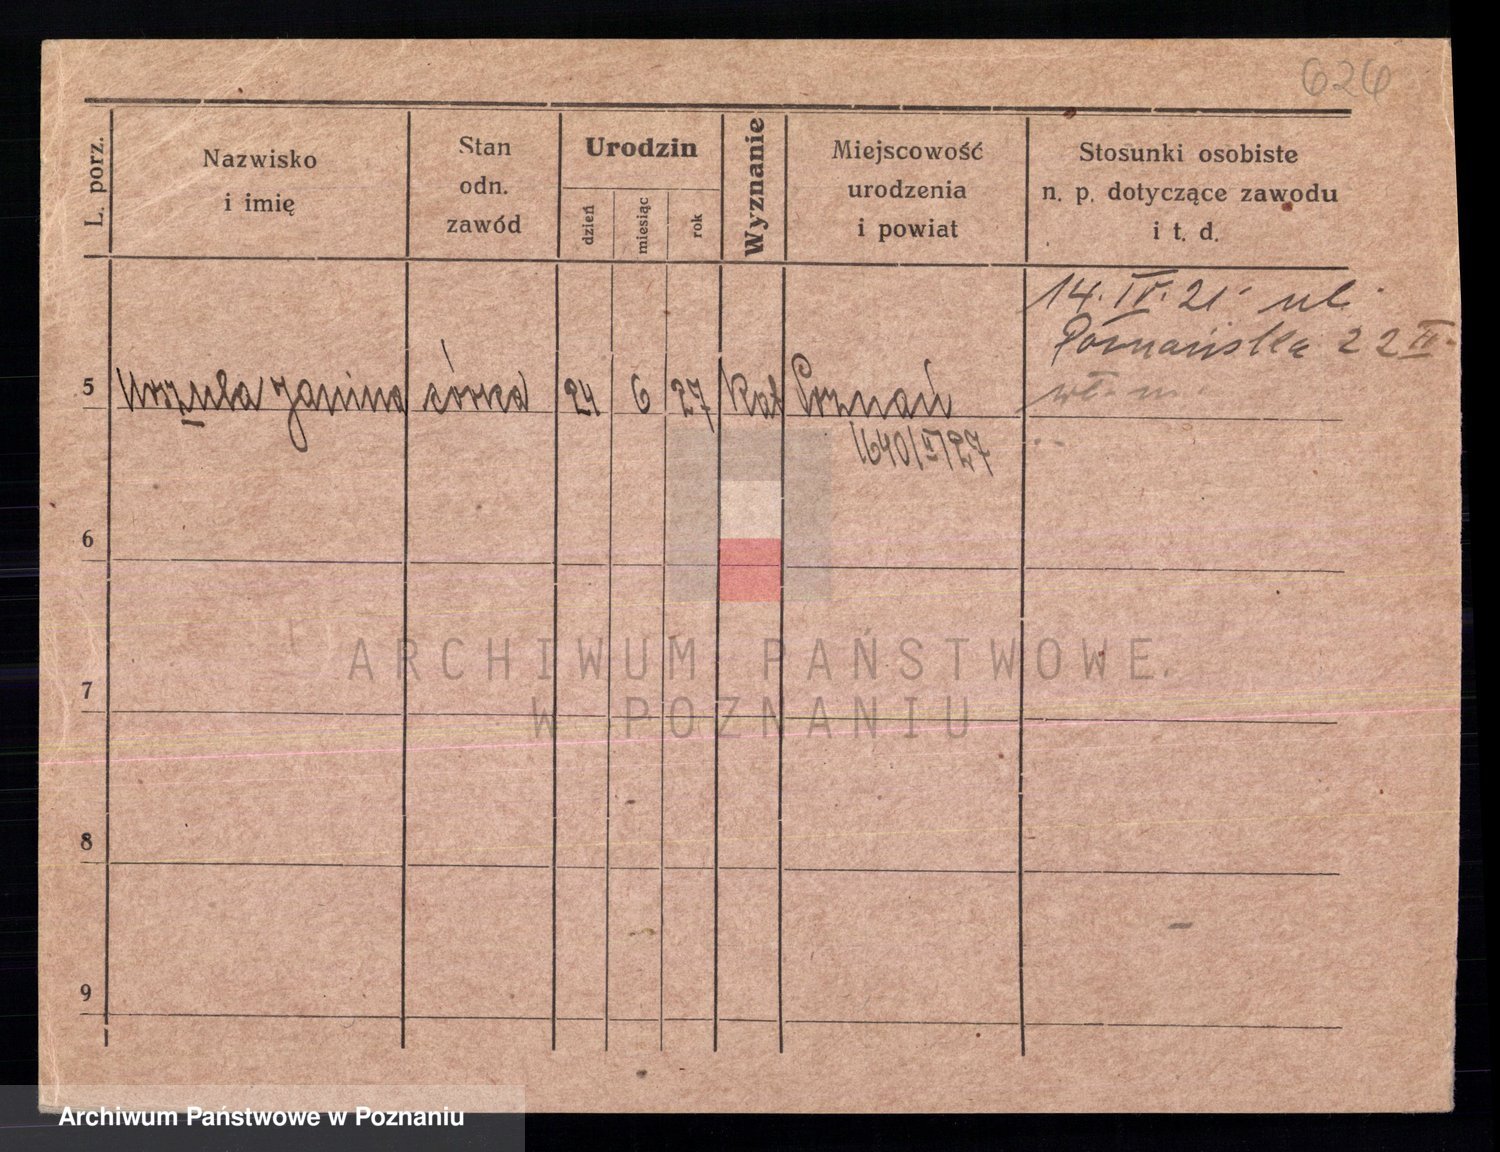 626
L. porz.
Nazwisko
i imię
Stan
odn.
zawód
Urodzin
dzień
miesiąc
rok
Wyznanie
Miejscowość
urodzenia
i powiat
Stosunki osobiste
n. p. dotyczące zawodu
i t. d.
14. IV. 21 ul.
Poznańska 22 II.
5 Urszula Janina córka 24 6 27 Kat Poznań
1640/II/27
6
7
8
9
ARCHIWUM PAŃSTWOWE
W POZNANIU
Archiwum Państwowe w Poznaniu